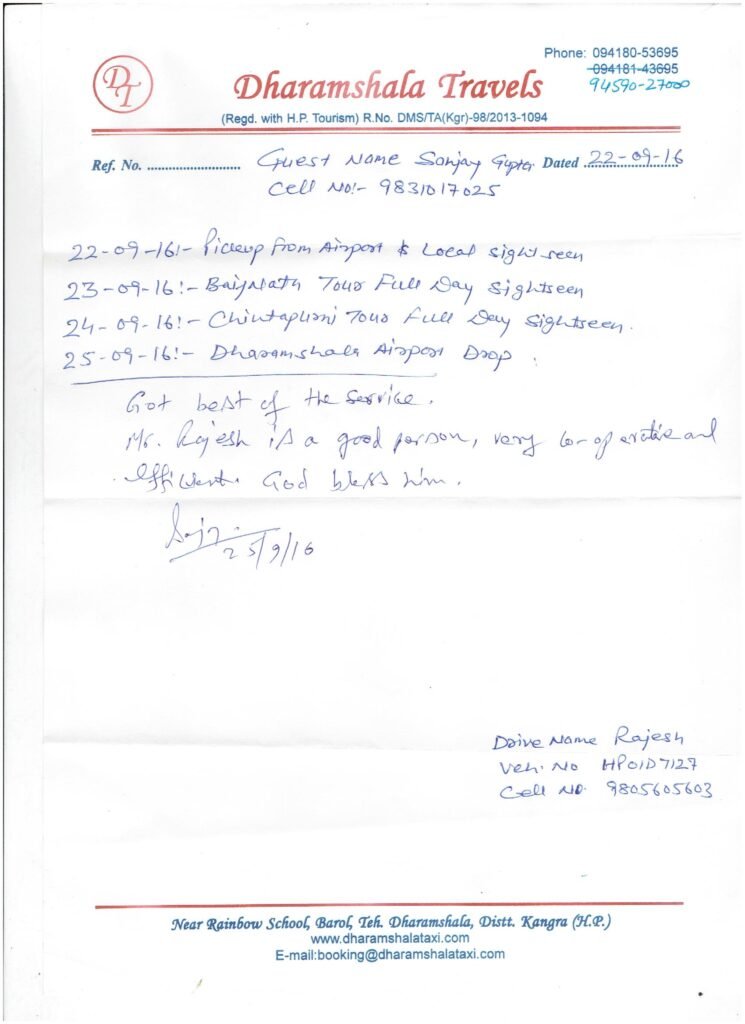 DT
Phone: 094180-53695
094181-43695
94590-27000
Dharamshala Travels
(Regd. with H.P. Tourism) R.No. DMS/TA(Kgr)-98/2013-1094
Ref. No. ........................... Guest Name Sanjay Gupta Dated 22-09-16
Cell No:- 9831017025
22-09-16:- Pickup from Airport & Local sightseen
23-09-16:- Baijnath Tour Full Day Sightseen
24-09-16:- Chintapurni Tour Full Day Sightseen.
25-09-16:- Dharamshala Airport Drop.
Got best of the service.
Mr. Rajesh is a good person, very co-operative and
efficient. God bless him.
25/9/16
Drive Name Rajesh
Veh. No HP01D7127
Cell No. 9805605603
Near Rainbow School, Barol, Teh. Dharamshala, Distt. Kangra (H.P.)
www.dharamshalataxi.com
E-mail:booking@dharamshalataxi.com